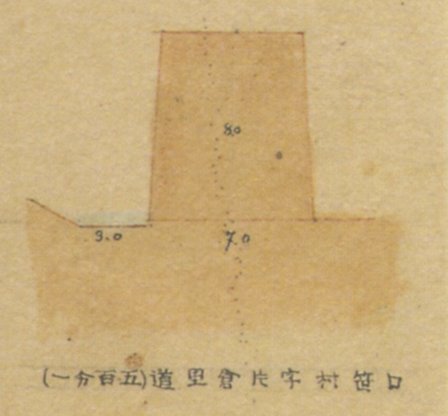 8.0
3.0 7.0
口笹村字片倉里道(五百分一)